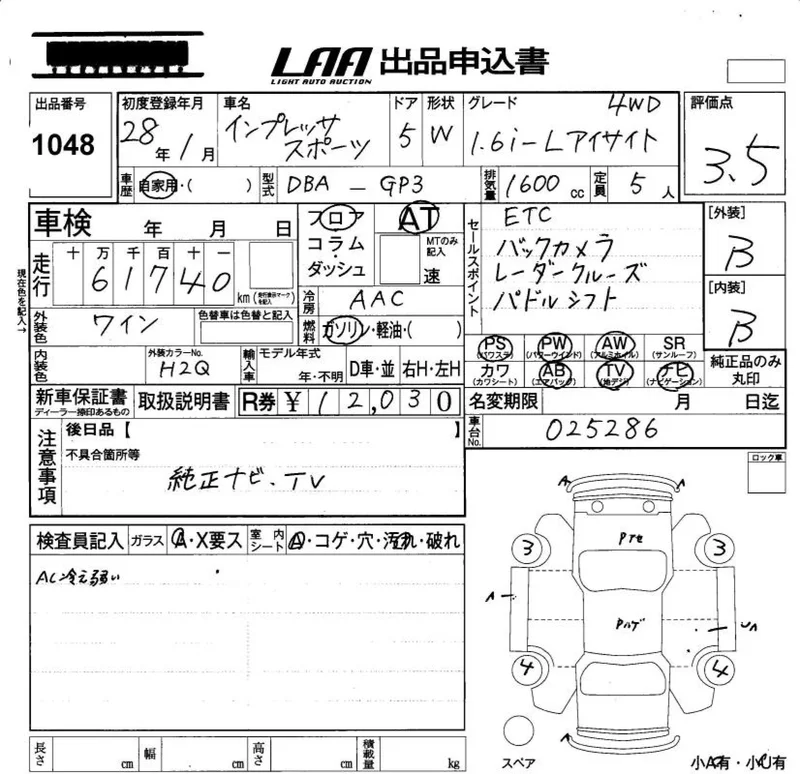 LAA 出品申込書
LIGHT AUTO AUCTION
出品番号
1048
初度登録年月
28年1月
車名
インプレッサ
スポーツ
ドア
5
形状
W
グレード
4WD
1.6i-Lアイサイト
評価点
3.5
車歴
自家用・( )
型式
DBA - GP3
排気量
1600cc
定員
5人
車検 年 月 日
フロア
コラム
・
ダッシュ
AT
MTのみ
記入
速
セールスポイント
ETC
バックカメラ
レーダークルーズ
パドルシフト
[外装]
B
[内装]
B
現在色を記入→
走行
十 万 千 百 十 一
6 1 7 4 0
km (走行表示マークを記入)
冷房
AAC
燃料
ガソリン・軽油・( )
外装色
ワイン
色替車は色替と記入
内装色
外装カラーNo.
H2Q
輸入車
モデル年式
年・不明
D車・並
右H・左H
PS
(パワステ)
PW
(パワーウインド)
AW
(アルミホイル)
SR
(サンルーフ)
カワ
(カワシート)
AB
(エアバック)
TV
(地デジ)
ナビ
(ナビゲーション)
純正品のみ
丸印
新車保証書
ディーラー捺印あるもの
取扱説明書
R券
¥12,030
名変期限 月 日迄
車台No.
025286
注意事項
後日品【 】
不具合箇所等
純正ナビ、TV
ロック車
検査員記入
ガラス
A・X要ス
室内シート
A・コゲ・穴・汚れ・破れ
AC冷え弱い
A
A
Pアセ
3
3
A
Pハゲ
UA
4
4
スペア
小A有・小U有
長さ cm
幅 cm
高さ cm
積載量 kg